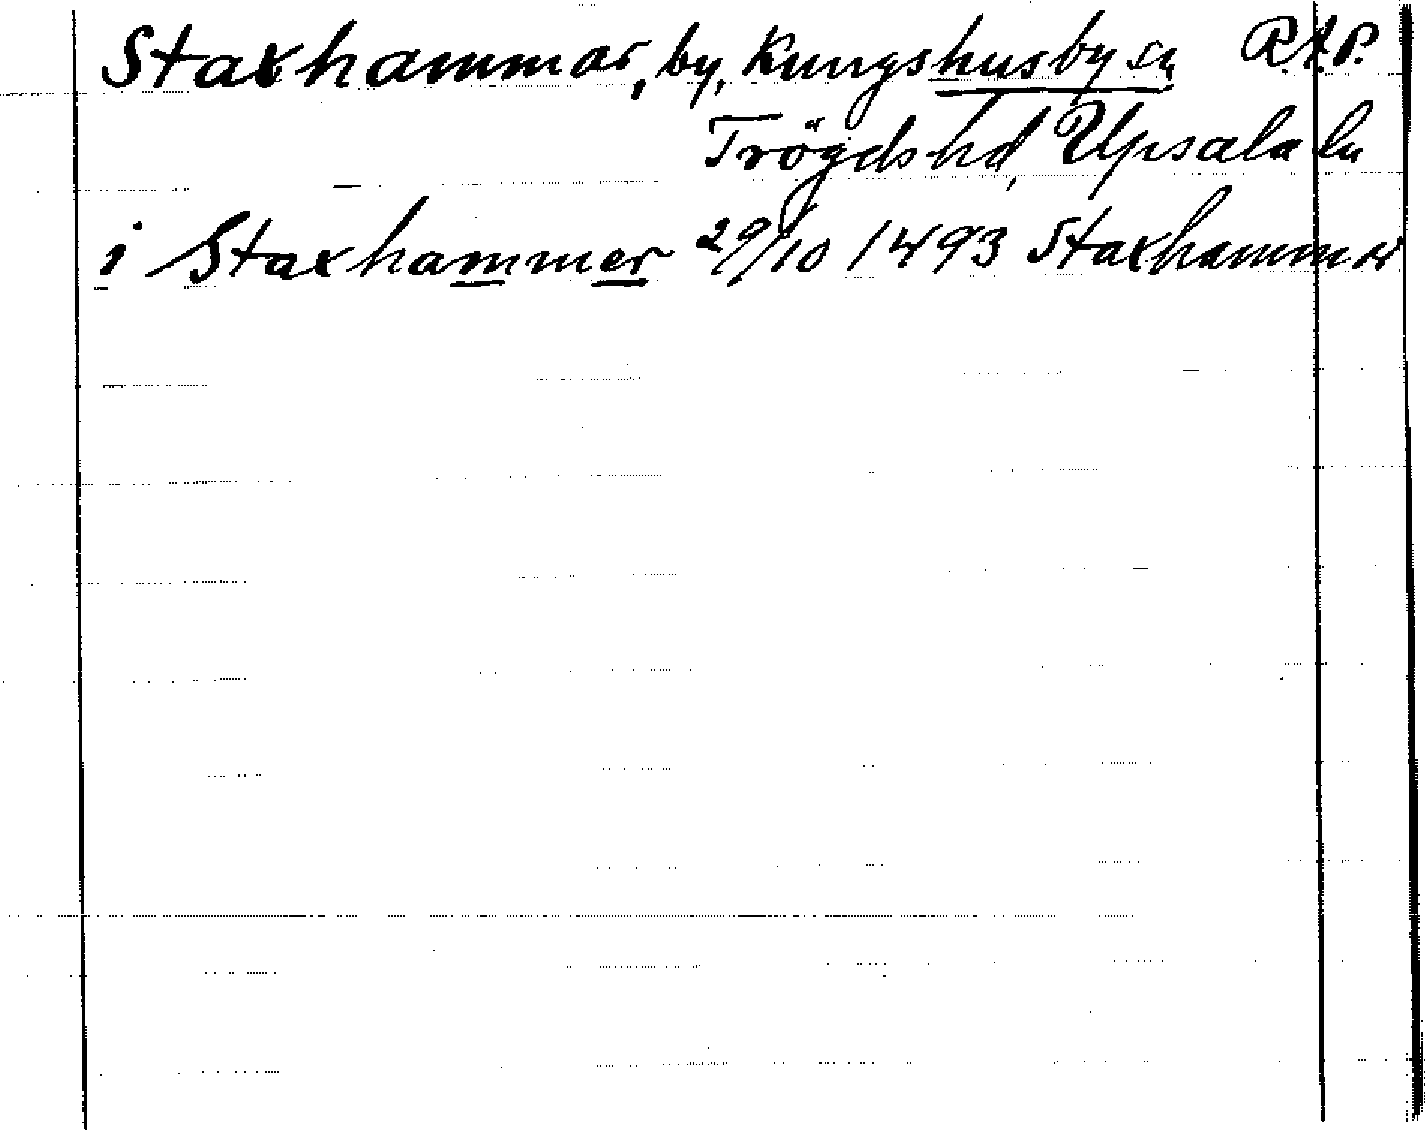 Staxhammar, by, Kungshusby sn RAP.
Trögds hd, Upsala ln
i Staxhammer 29/10 1493 Staxhammar